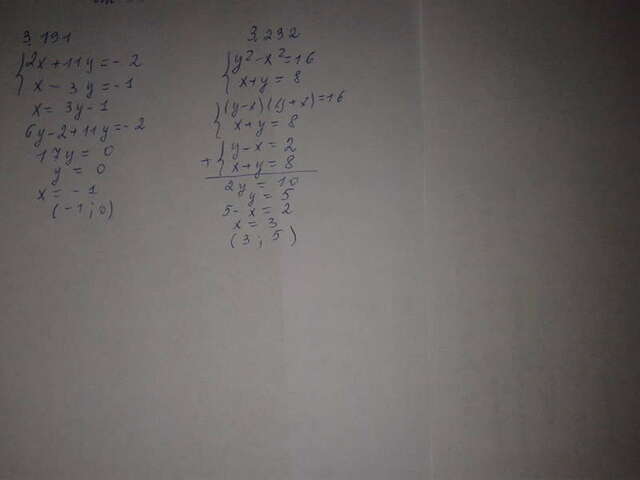 3.191
2x+11y=-2
x-3y=-1
x=3y-1
6y-2+11y=-2
17y=0
y=0
x=-1
(-1;0)
3.232
y²-x²=16
x+y=8
(y-x)(y+x)=16
x+y=8
y-x=2
+ x+y=8
2y=10
y=5
5-x=2
x=3
(3;5)